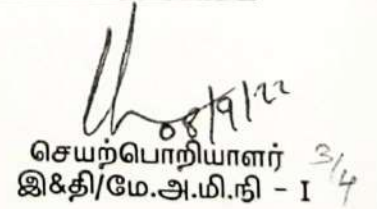 08/9/22
செயற்பொறியாளர் 3/4
இ&தி/மே.அ.மி.நி - I